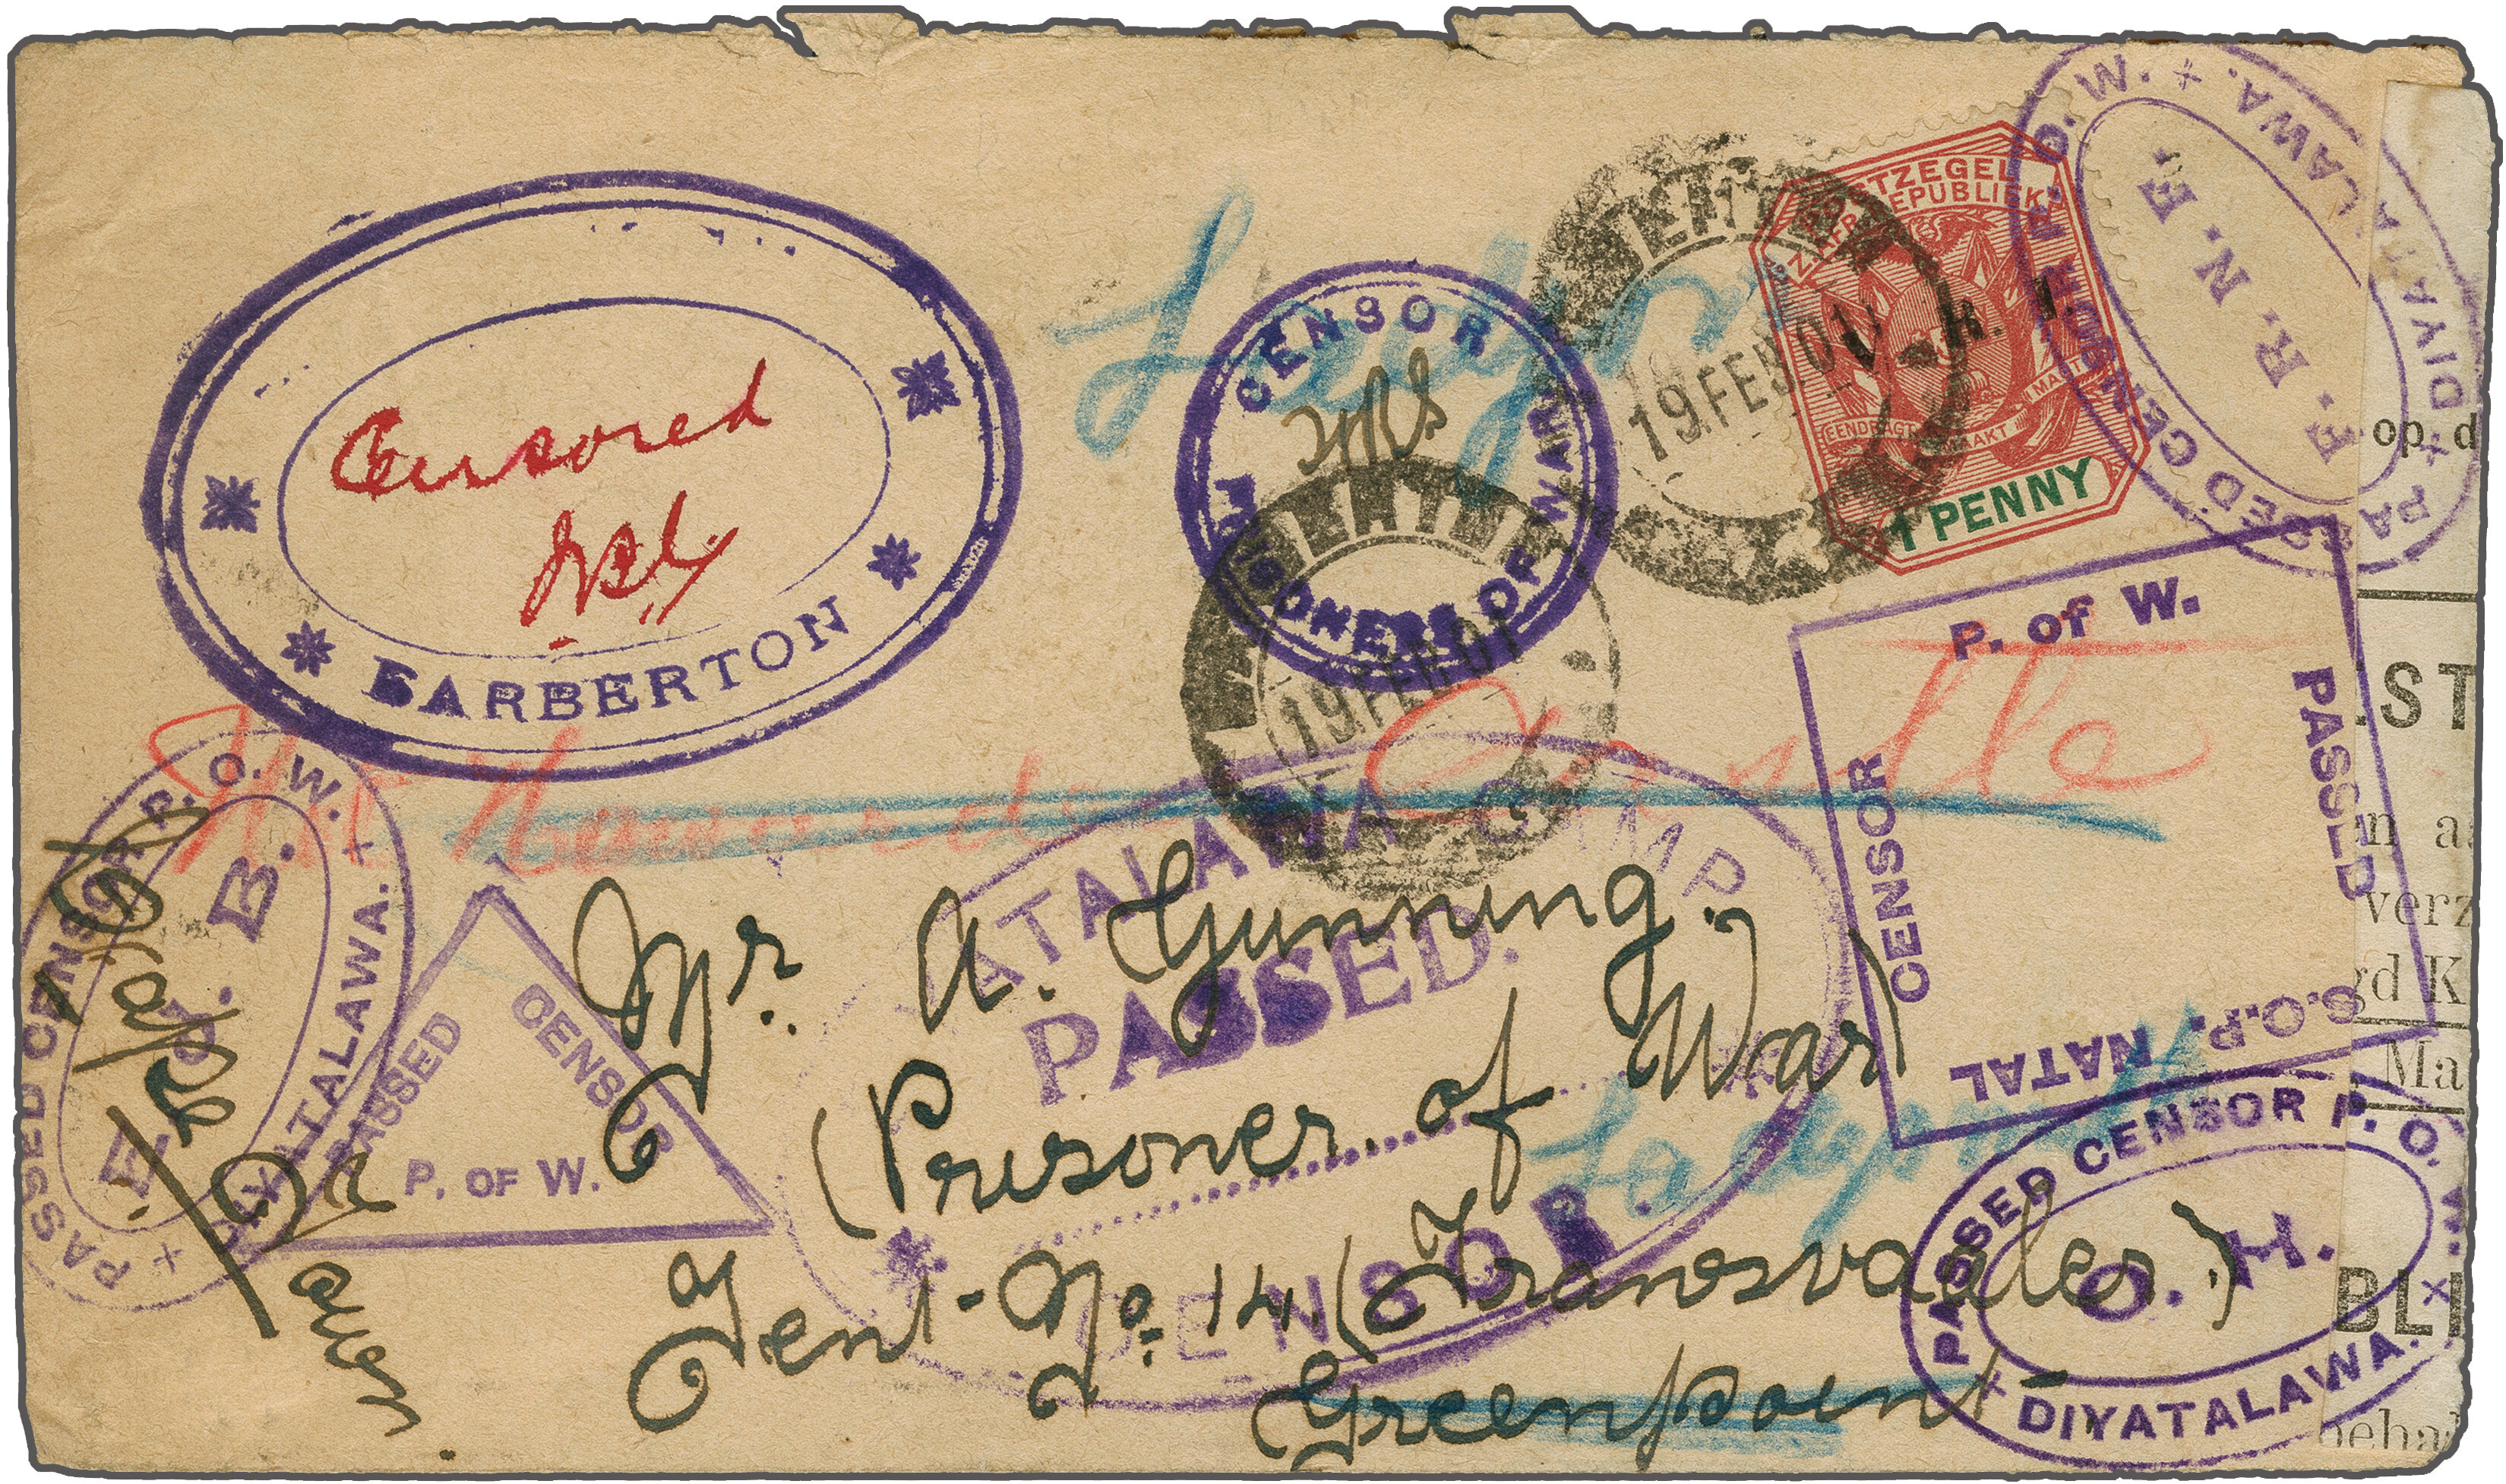 CENSOR
PRISONERS OF WAR
19.FEB.01
POSTZEGEL
Z. AFR. REPUBLIEK
V.R.I.
EENDRAGT MAAKT MAGT
1 PENNY
PASSED CENSOR P.O.W.
DIYATALAWA.
E. R. N. E.
op d
Censored
BARBERTON
19FEB.01
P. of W.
PASSED
CENSOR
S.O.P. NATAL
ST
n a
verz
gd K
Ma
PASSED CENSOR P.O.W.
DIYATALAWA.
B.
PASSED
CENSOR
P. OF W.
DIYATALAWA CAMP
PASSED.
CENSOR.
Mr. A. Gunning.
(Prisoner of War)
Tent-No. 14 (Transvaaler.)
Greenpoint
Cape Town
Ladysmith
PASSED CENSOR P.O.W.
O. H.
DIYATALAWA.
BLI
beha